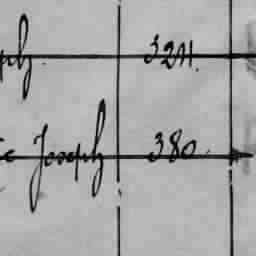 ph. 3211.
c Joseph 380.